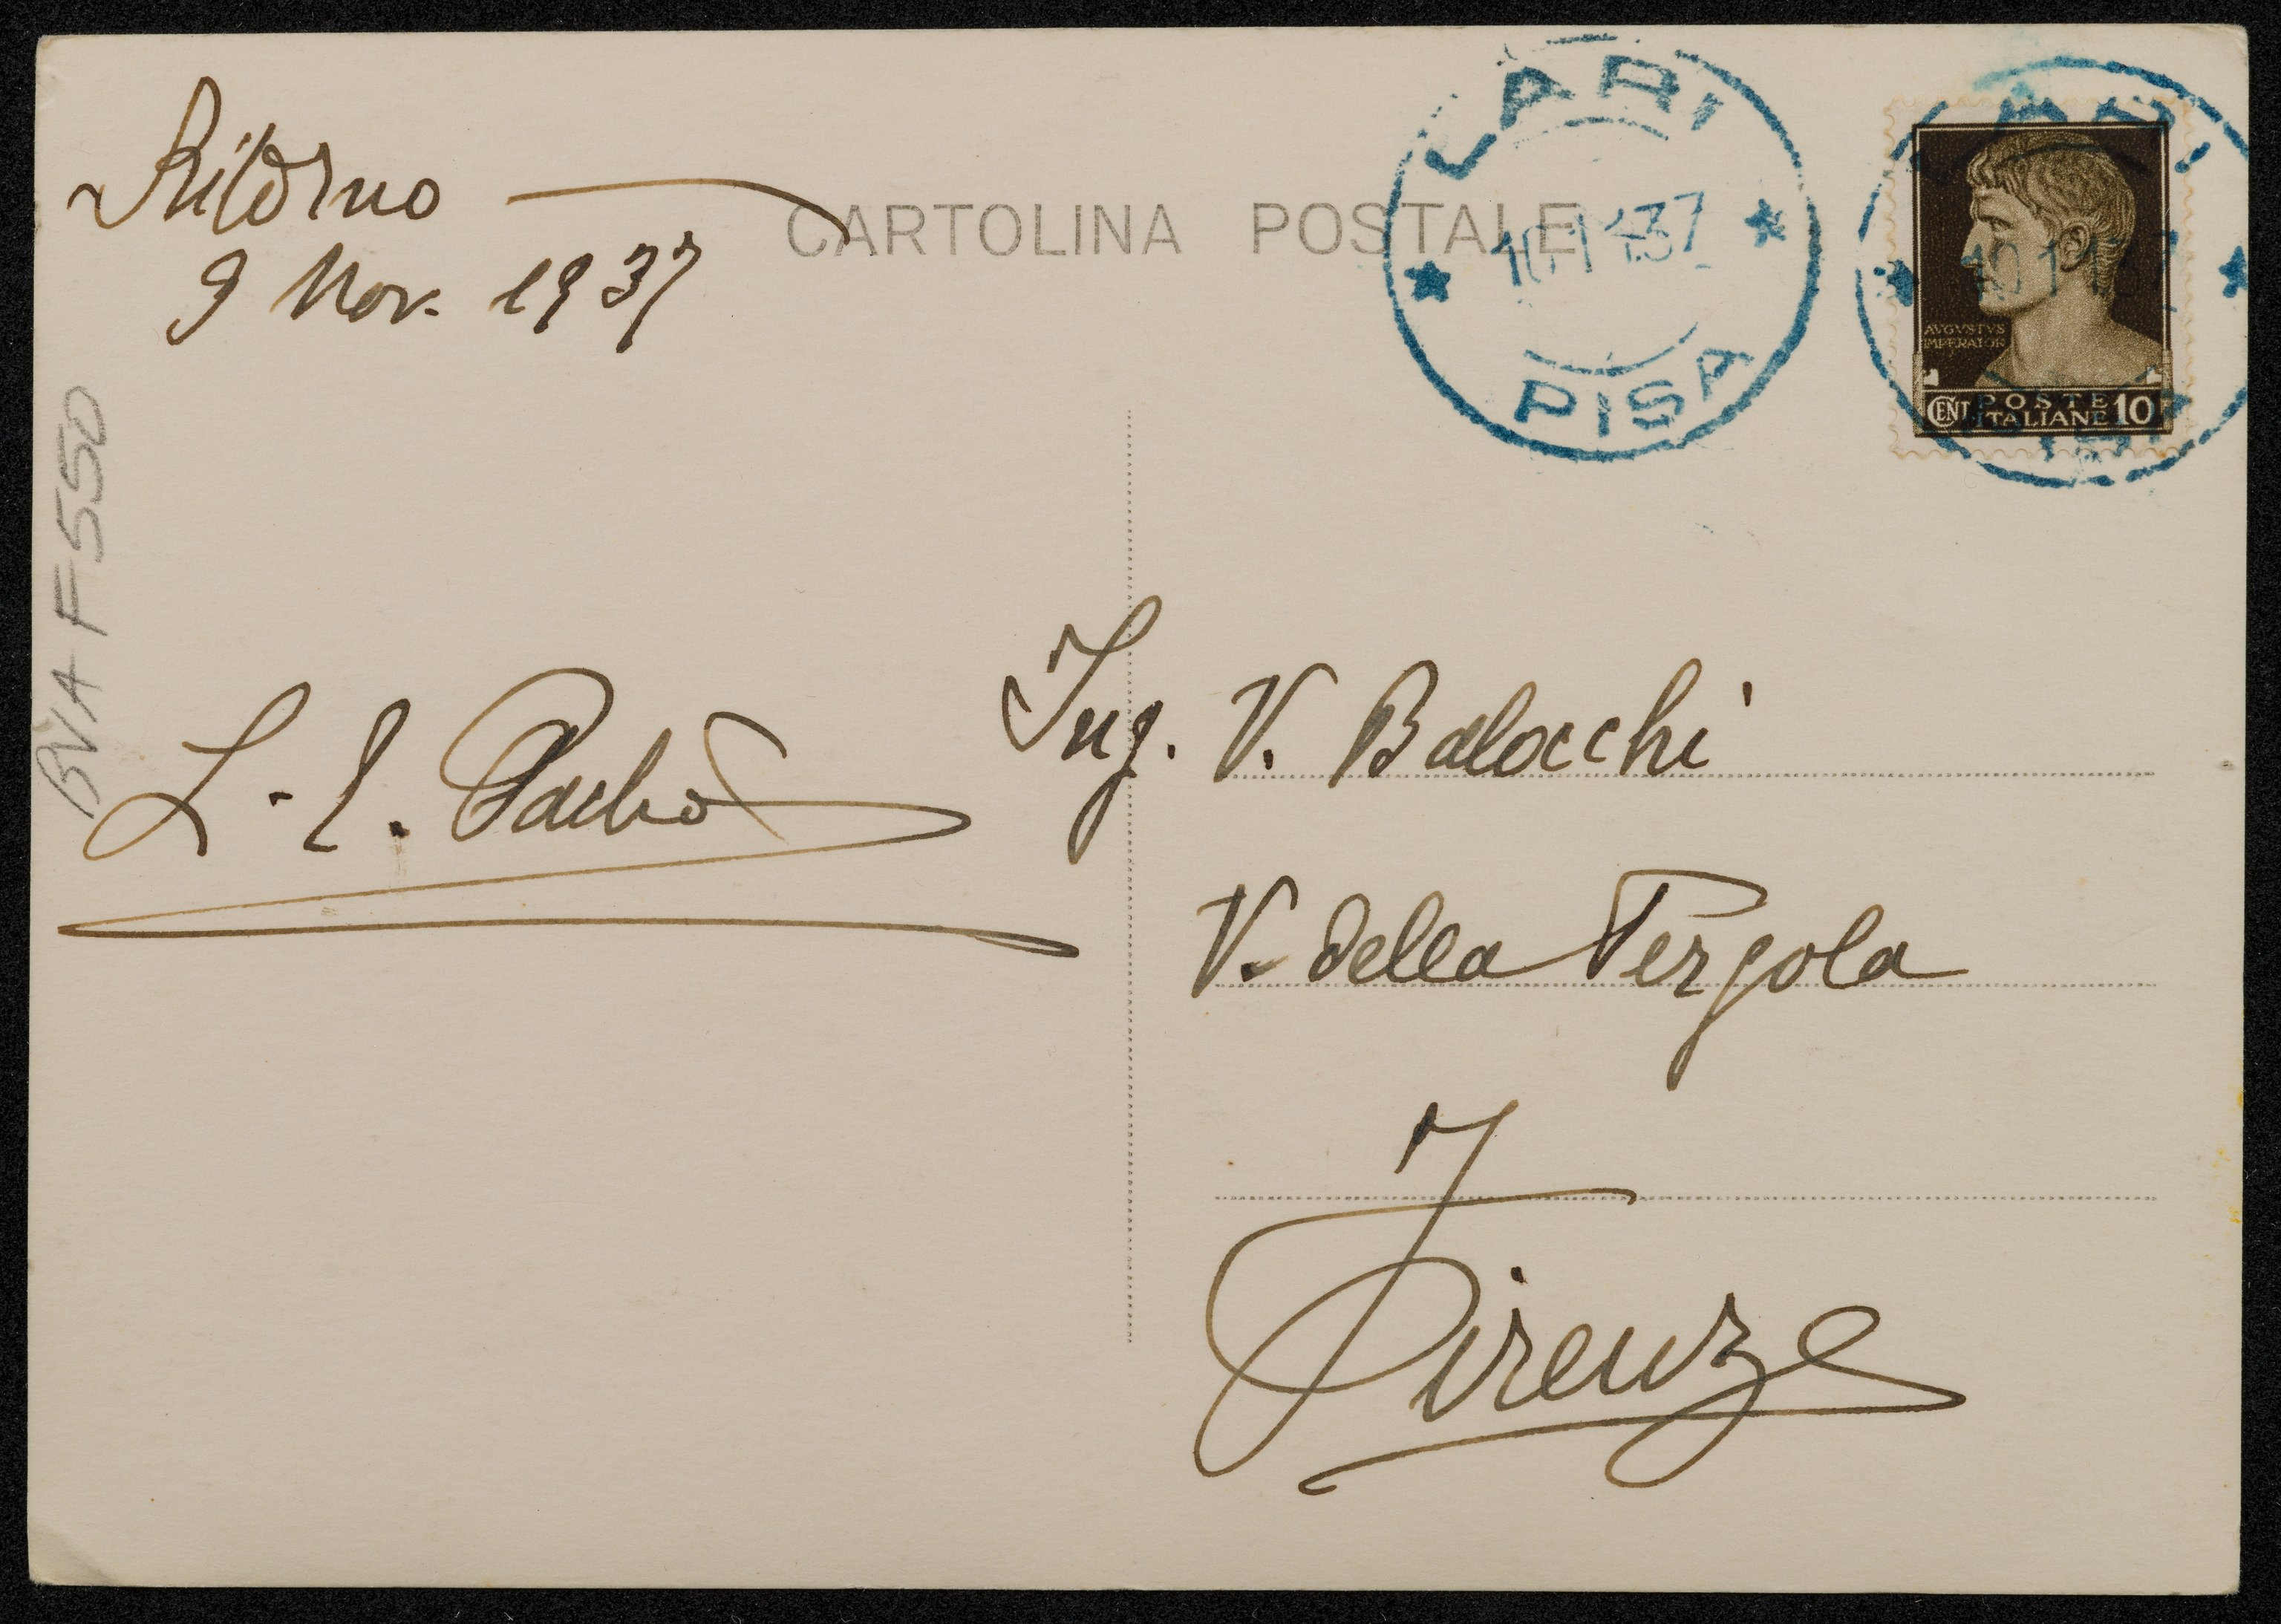 Ritorno
9 Nov. 1937
CARTOLINA POSTALE
LARI
10 11 37
PISA
LARI
10 11 37
AVGVSTVS
IMPERATOR
CENT POSTE ITALIANE 10
BVA F 550
L. E.
Ing. V. Balocchi
V. della Pergola
Firenze